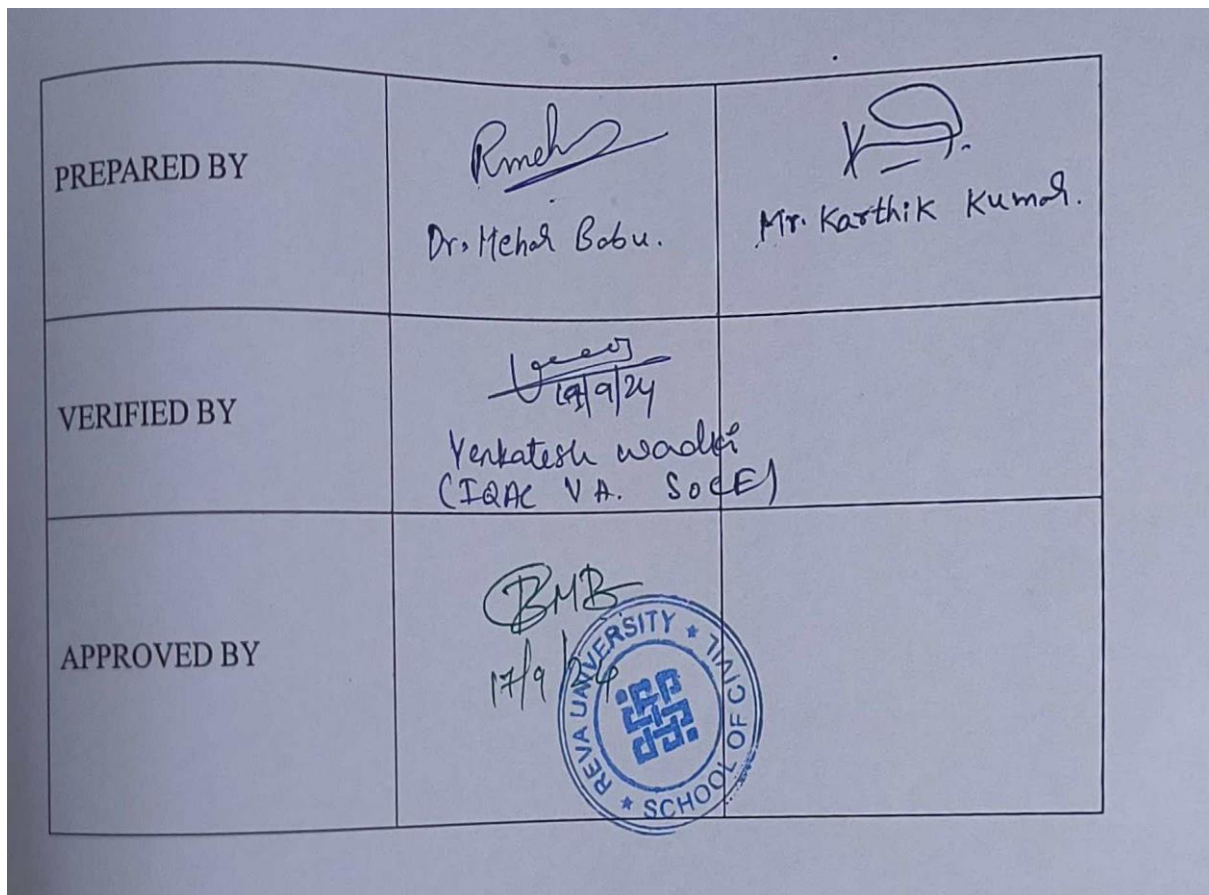 PREPARED BY
Rmeh
Dr. Mehar Babu.
Mr. Karthik Kumar.
VERIFIED BY
9/24
Venkatesh Wadki
(IQAC VA. SOCE)
APPROVED BY
BMB
17/9/24
REVA UNIVERSITY ★ CIVIL
★ SCHOOL OF